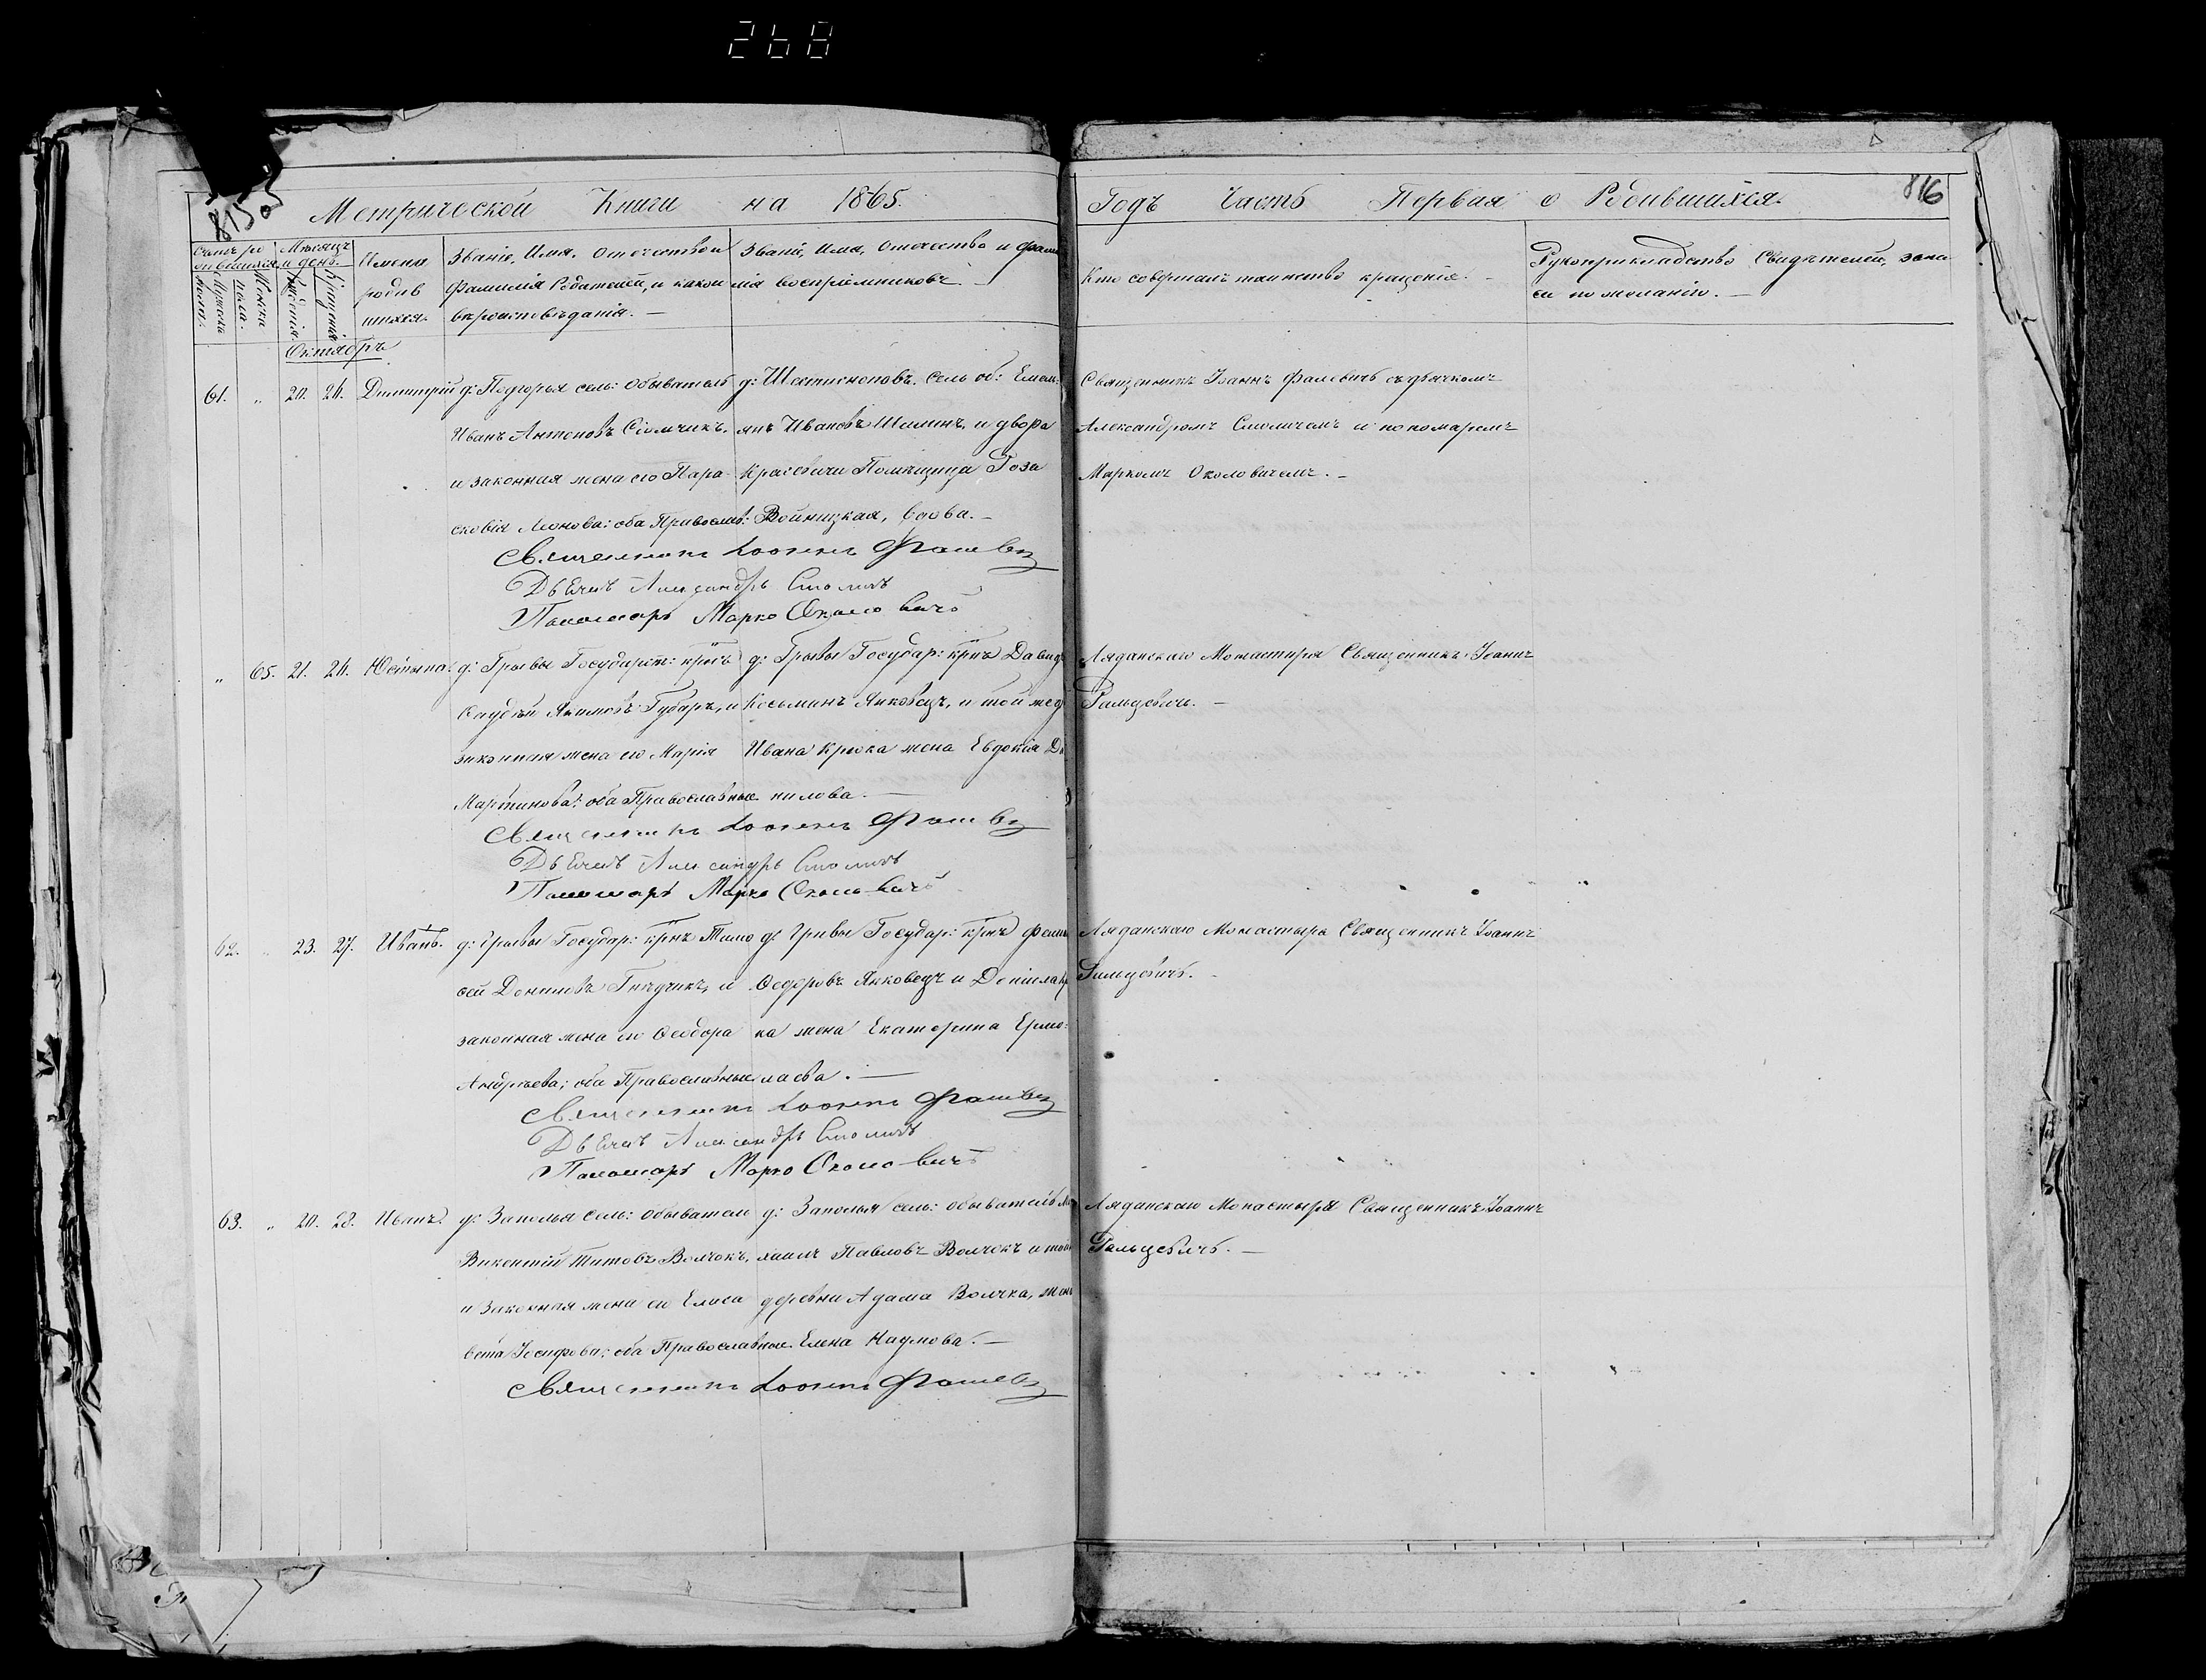 268
815 об
816
Метрической Книги на 1865.
Годъ Часть Первая о Родившихся.
Счетъ ро
дившихся
Мужеска
пола.
Женска
пола.
Мѣсяцъ
и день.
Рожденія.
Крещенія.
Имена
родив
шихся.
Званіе, Имя, Отечество и
Фамилія Родителей, и какого
вѣроисповѣданія. —
Званіе, Имя, Отечество и фами
лія воспріемниковъ
Кто совершалъ таинство крещенія. —
Рукоприкладство Свидѣтелей, запи
си по желанію. —
Октябрь
61. „ 20. 24. Димитрій
д: Подгорья сель: обыватель
Иванъ Антоновъ Сіомчикъ,
и законная жена его Пара
сковія Леонова: оба Правосл:
сель об: Емель:
янъ Ивановъ Шишинъ, и двора
Помѣщица Роза
Войницкая, вдова. —
Священникъ Іоаннъ Фалевичъ съ дьячкомъ
Александромъ Смоличемъ и пономаремъ
Маркомъ Околовичемъ. —
Священникъ Іоаннъ Фалевичъ
Дьячекъ Александръ Смоличъ
Пономарь Марко Околовичъ
„ 65. 21. 24. Юстина.
д: Гривы Государст: крнъ
Якимовъ Губаръ, и
законная жена его Марія
Мартинова; оба Православные
д: Гривы Государ: крнъ Давидъ
Косьминъ Янковецъ, и той же д
Ивана Крюка жена Евдокія Да
нилова. —
Ляданскаго Монастыря Священникъ Іоаннъ
Гальцевичъ. —
Священникъ Іоаннъ Фалевичъ
Дьячекъ Александръ Смоличъ
Пономарь Марко Околовичъ
62. „ 23. 27. Иванъ.
д: Гривы Государ: крнъ Тимо
фей Даниловъ Гнѣдчикъ, и
законная жена его Ѳеодора
Андреева; оба Православные
д: Гривы Государ: крнъ
Ѳедоровъ Янковецъ и Данила Крю
ка жена Екатерина Ермо:
лаева. —
Ляданскаго Монастыря Священникъ Іоаннъ
Гальцевичъ. —
Священникъ Іоаннъ Фалевичъ
Дьячекъ Александръ Смоличъ
Пономарь Марко Околовичъ
63. „ 20. 28. Иванъ.
д: Заполья сель: обыватель
Викентій Титовъ Волчокъ,
и Законная жена его Елиса
вета Іосифова; оба Православные
д: Заполья сель: обыватель
Павловъ Волчекъ и той
деревни Адама Волчка, жена
Елена Наумова. —
Ляданскаго Монастыря Священникъ Іоаннъ
Гальцевичъ. —
Священникъ Іоаннъ Фалевичъ